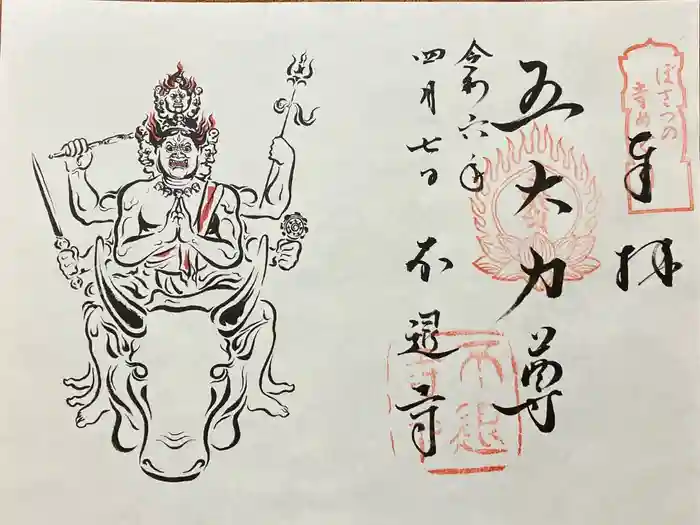 奉拝
ぼさつの
寺め
五大力尊
令和六年
四月七日
不退寺
不退